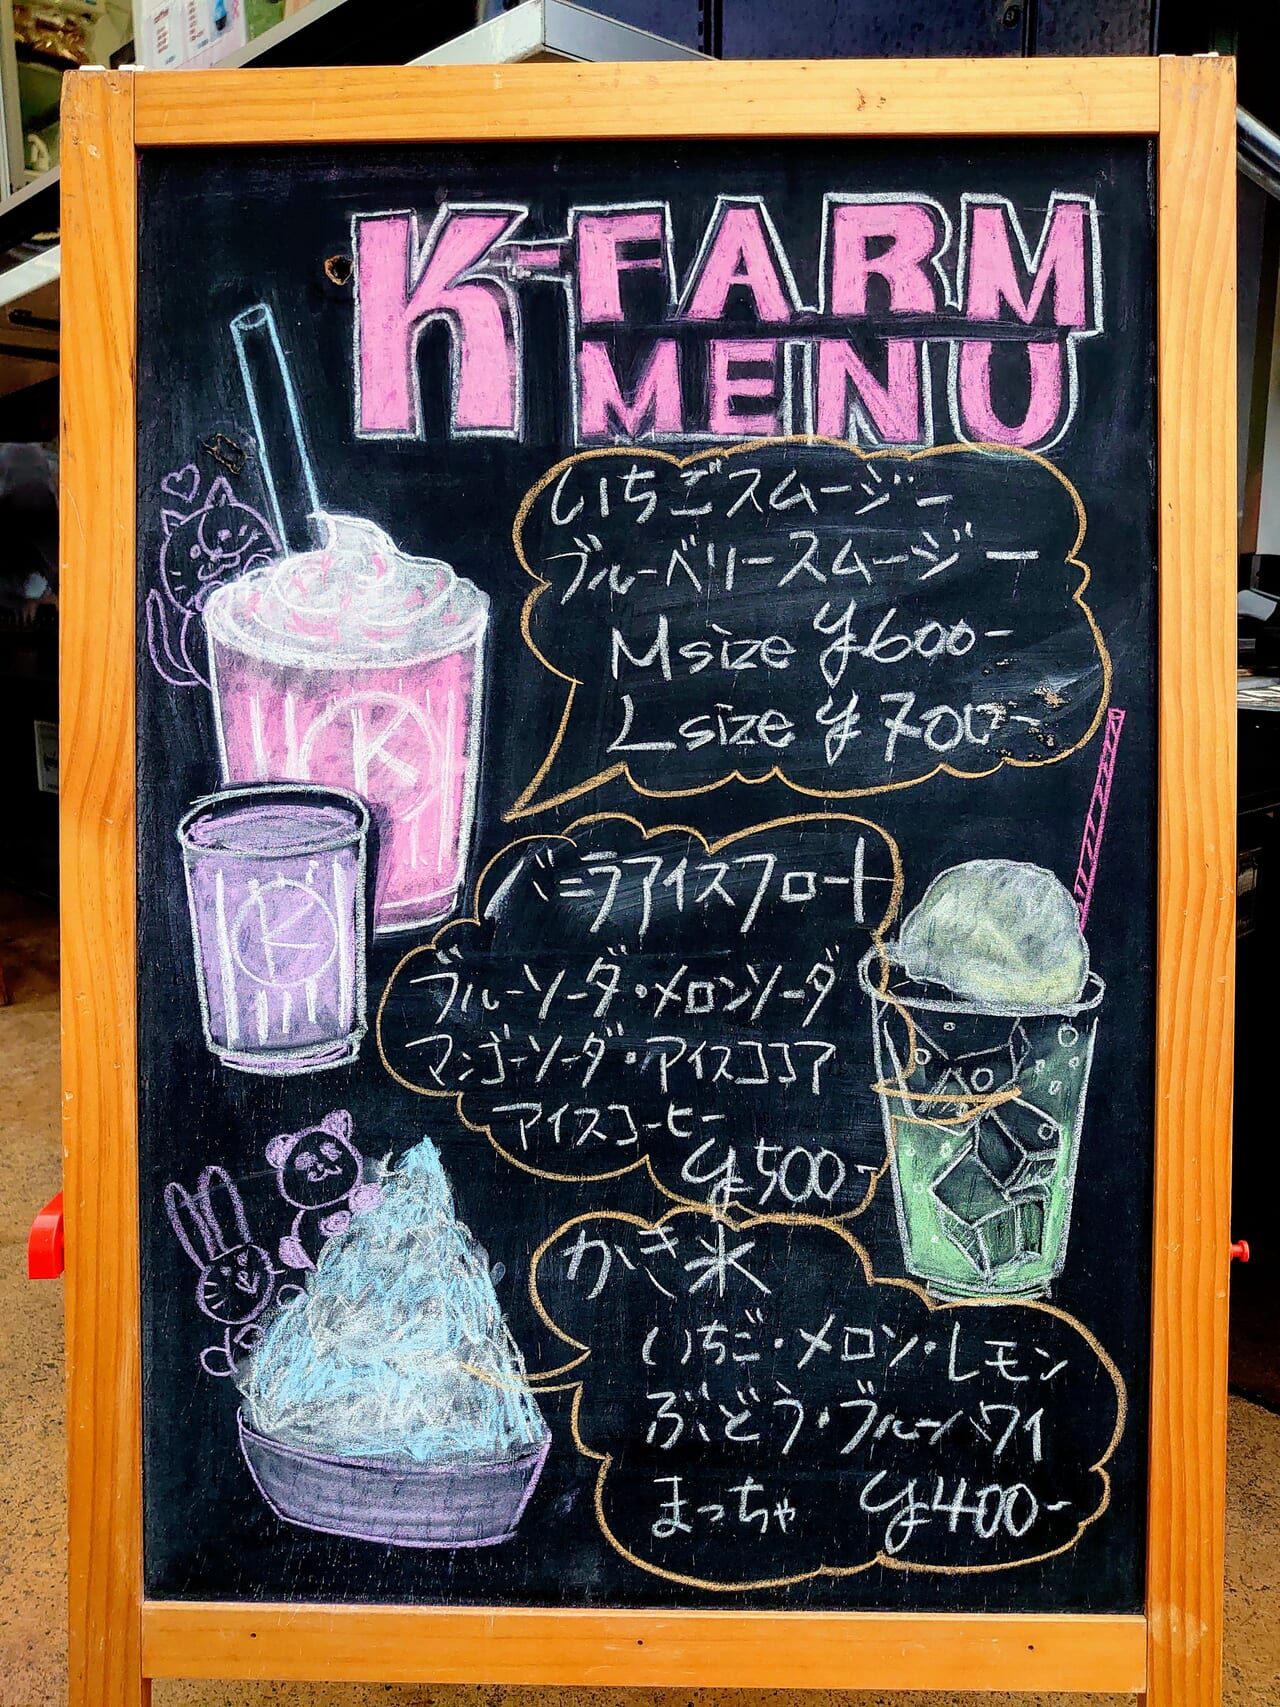 K-FARM
MENU
いちごスムージー
ブルーベリースムージー
M size ¥600-
L size ¥700-
バニラアイスフロート
ブルーソーダ・メロンソーダ
マンゴーソーダ・アイスココア
アイスコーヒー
¥500-
かき氷
いちご・メロン・レモン
ぶどう・ブルーハワイ
まっちゃ ¥400-
K
K